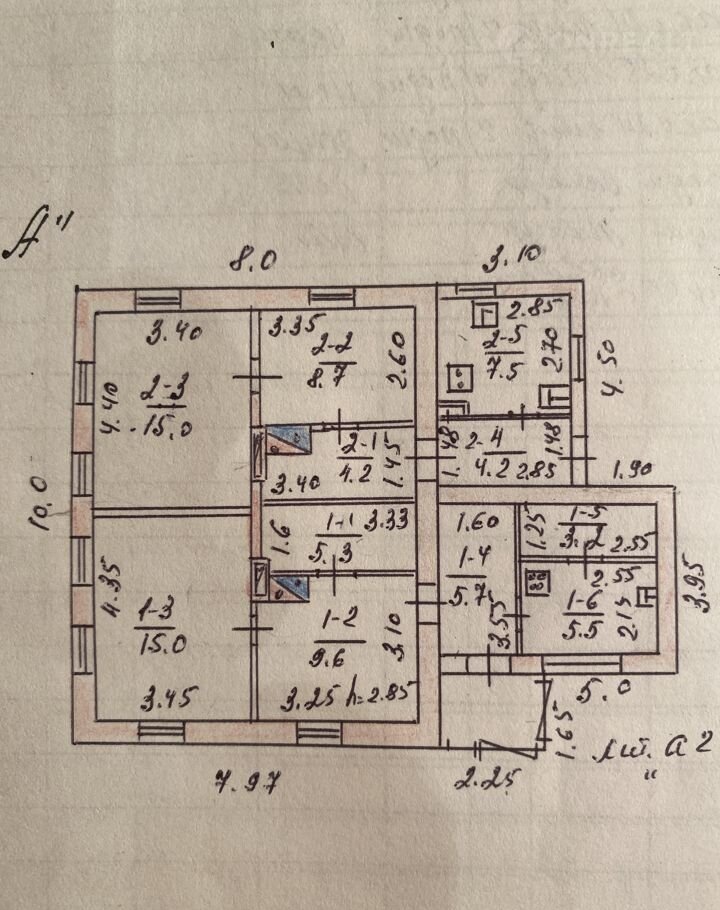 А"
8.0
3.10
3.40
3.35
2.85
2-2
8.7
2.60
2-5
7.5
2.70
4.50
4.40
2-3
15.0
2-1
4.2
1.45
3.40
1.48
2-4
4.2
2.85
1.48
1.90
10.0
1.6
1-1
5.3
3.33
1.60
1.25
1-5
3.2
2.55
4.35
1-3
15.0
3.45
1-2
9.6
3.10
3.25 h=2.85
1-4
5.7
3.55
2.55
1-6
5.5
2.15
3.95
5.0
1.65
лит. а 2
"
7.97
2.25